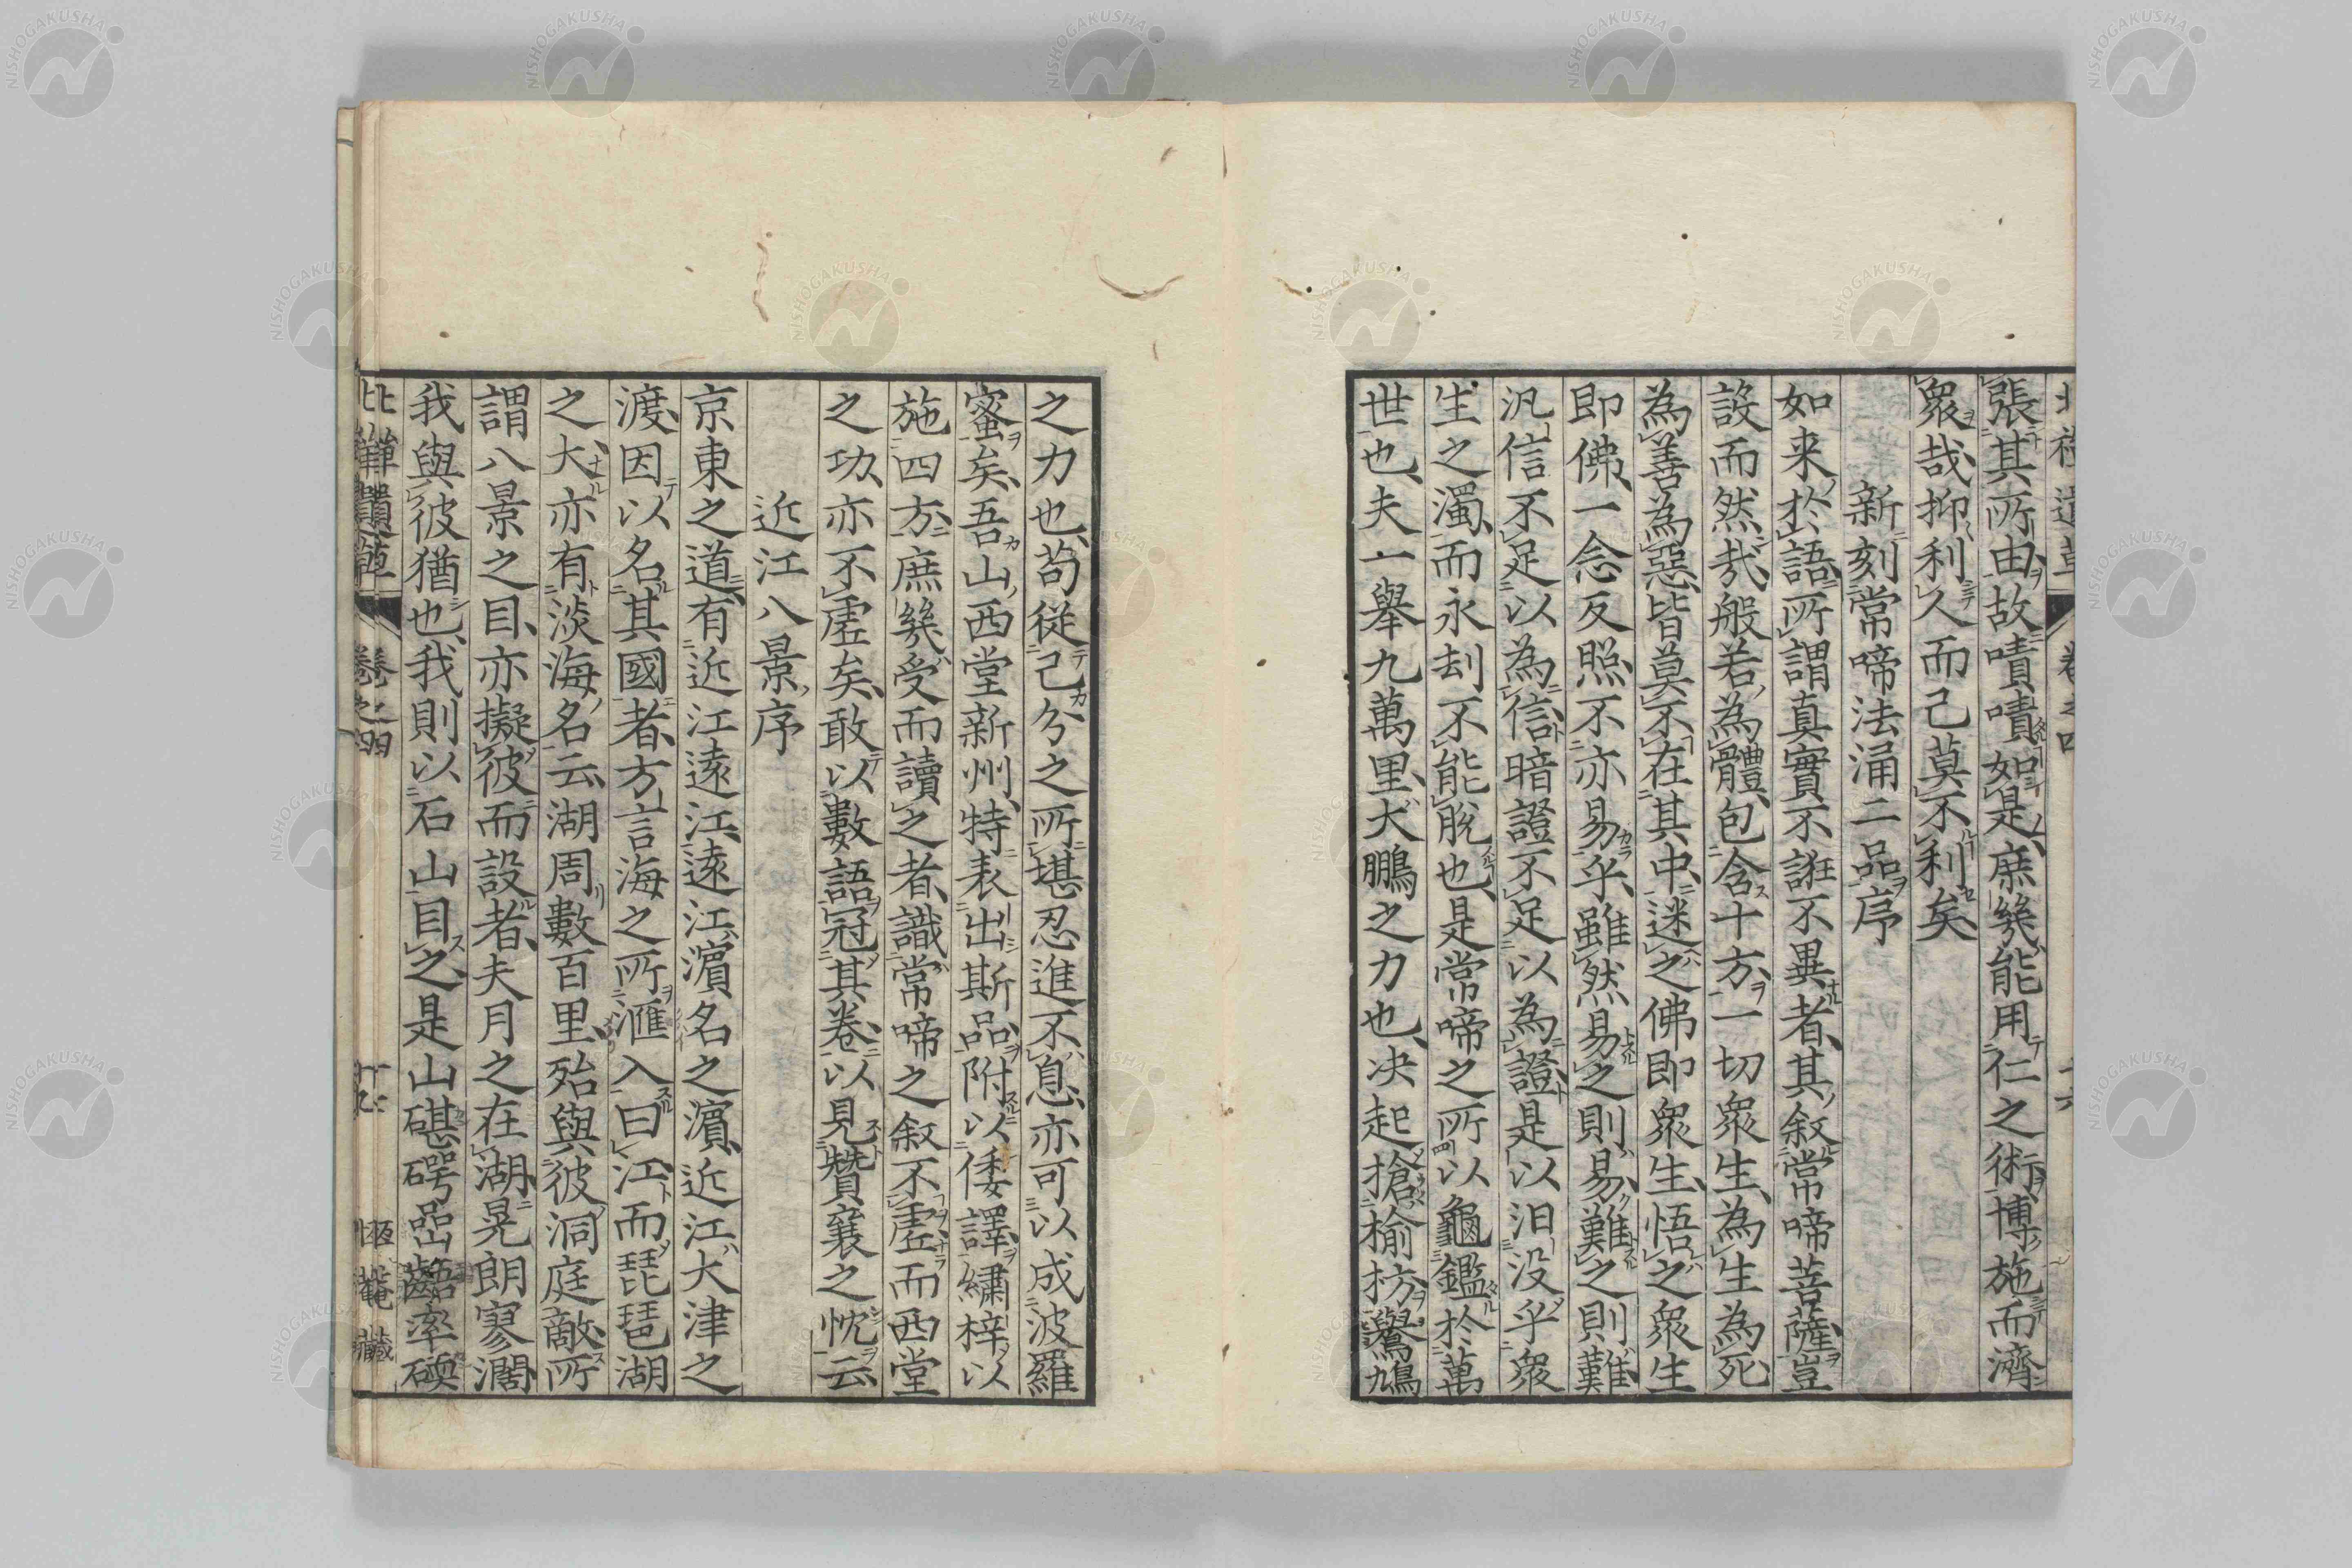 張其所由、故嘖嘖如是、庶幾能用仁之術、博施而濟
衆哉、抑利人而己莫不利矣、
新刻常啼法涌二品序
如来於語所謂真實不誑不異者、其叙常啼菩薩、豈
設而然哉、般若為體、包含十方、一切衆生、為生為死、
為善為惡、皆莫不在其中、迷之佛即衆生、悟之衆生
即佛、一念反照、不亦易乎、雖然易之則易、難之則難、
汎信不足以為信、暗證不足以為證、是以汨没乎衆
生之濁、而永刦不能脫也、是常啼之所以龜鑑於萬
世也、夫一擧九萬里、大鵬之力也、决起搶榆枋、鷽鳩
之力也、苟從己分之所堪忍進不息、亦可以成波羅
蜜矣、吾山西堂新州、特表出斯品、附以倭譯、繡梓以
施四方、庶幾受而讀之者、識常啼之叙不虛、而西堂
之功、亦不虛矣、敢以數語冠其卷、以見贊襄之忱云
近江八景序
京東之道、有近江遠江、遠江濵名之濵、近江大津之
渡、因以名其國者、方言海之所滙入曰江、而琵琶湖
之大、亦有淡海名云、湖周數百里、殆與彼洞庭敵、所
謂八景之目、亦擬彼而設者、夫月之在湖、晃朗寥濶
我與彼猶也、我則以石山目之、是山碪碍嵒齬率碝
卷之四